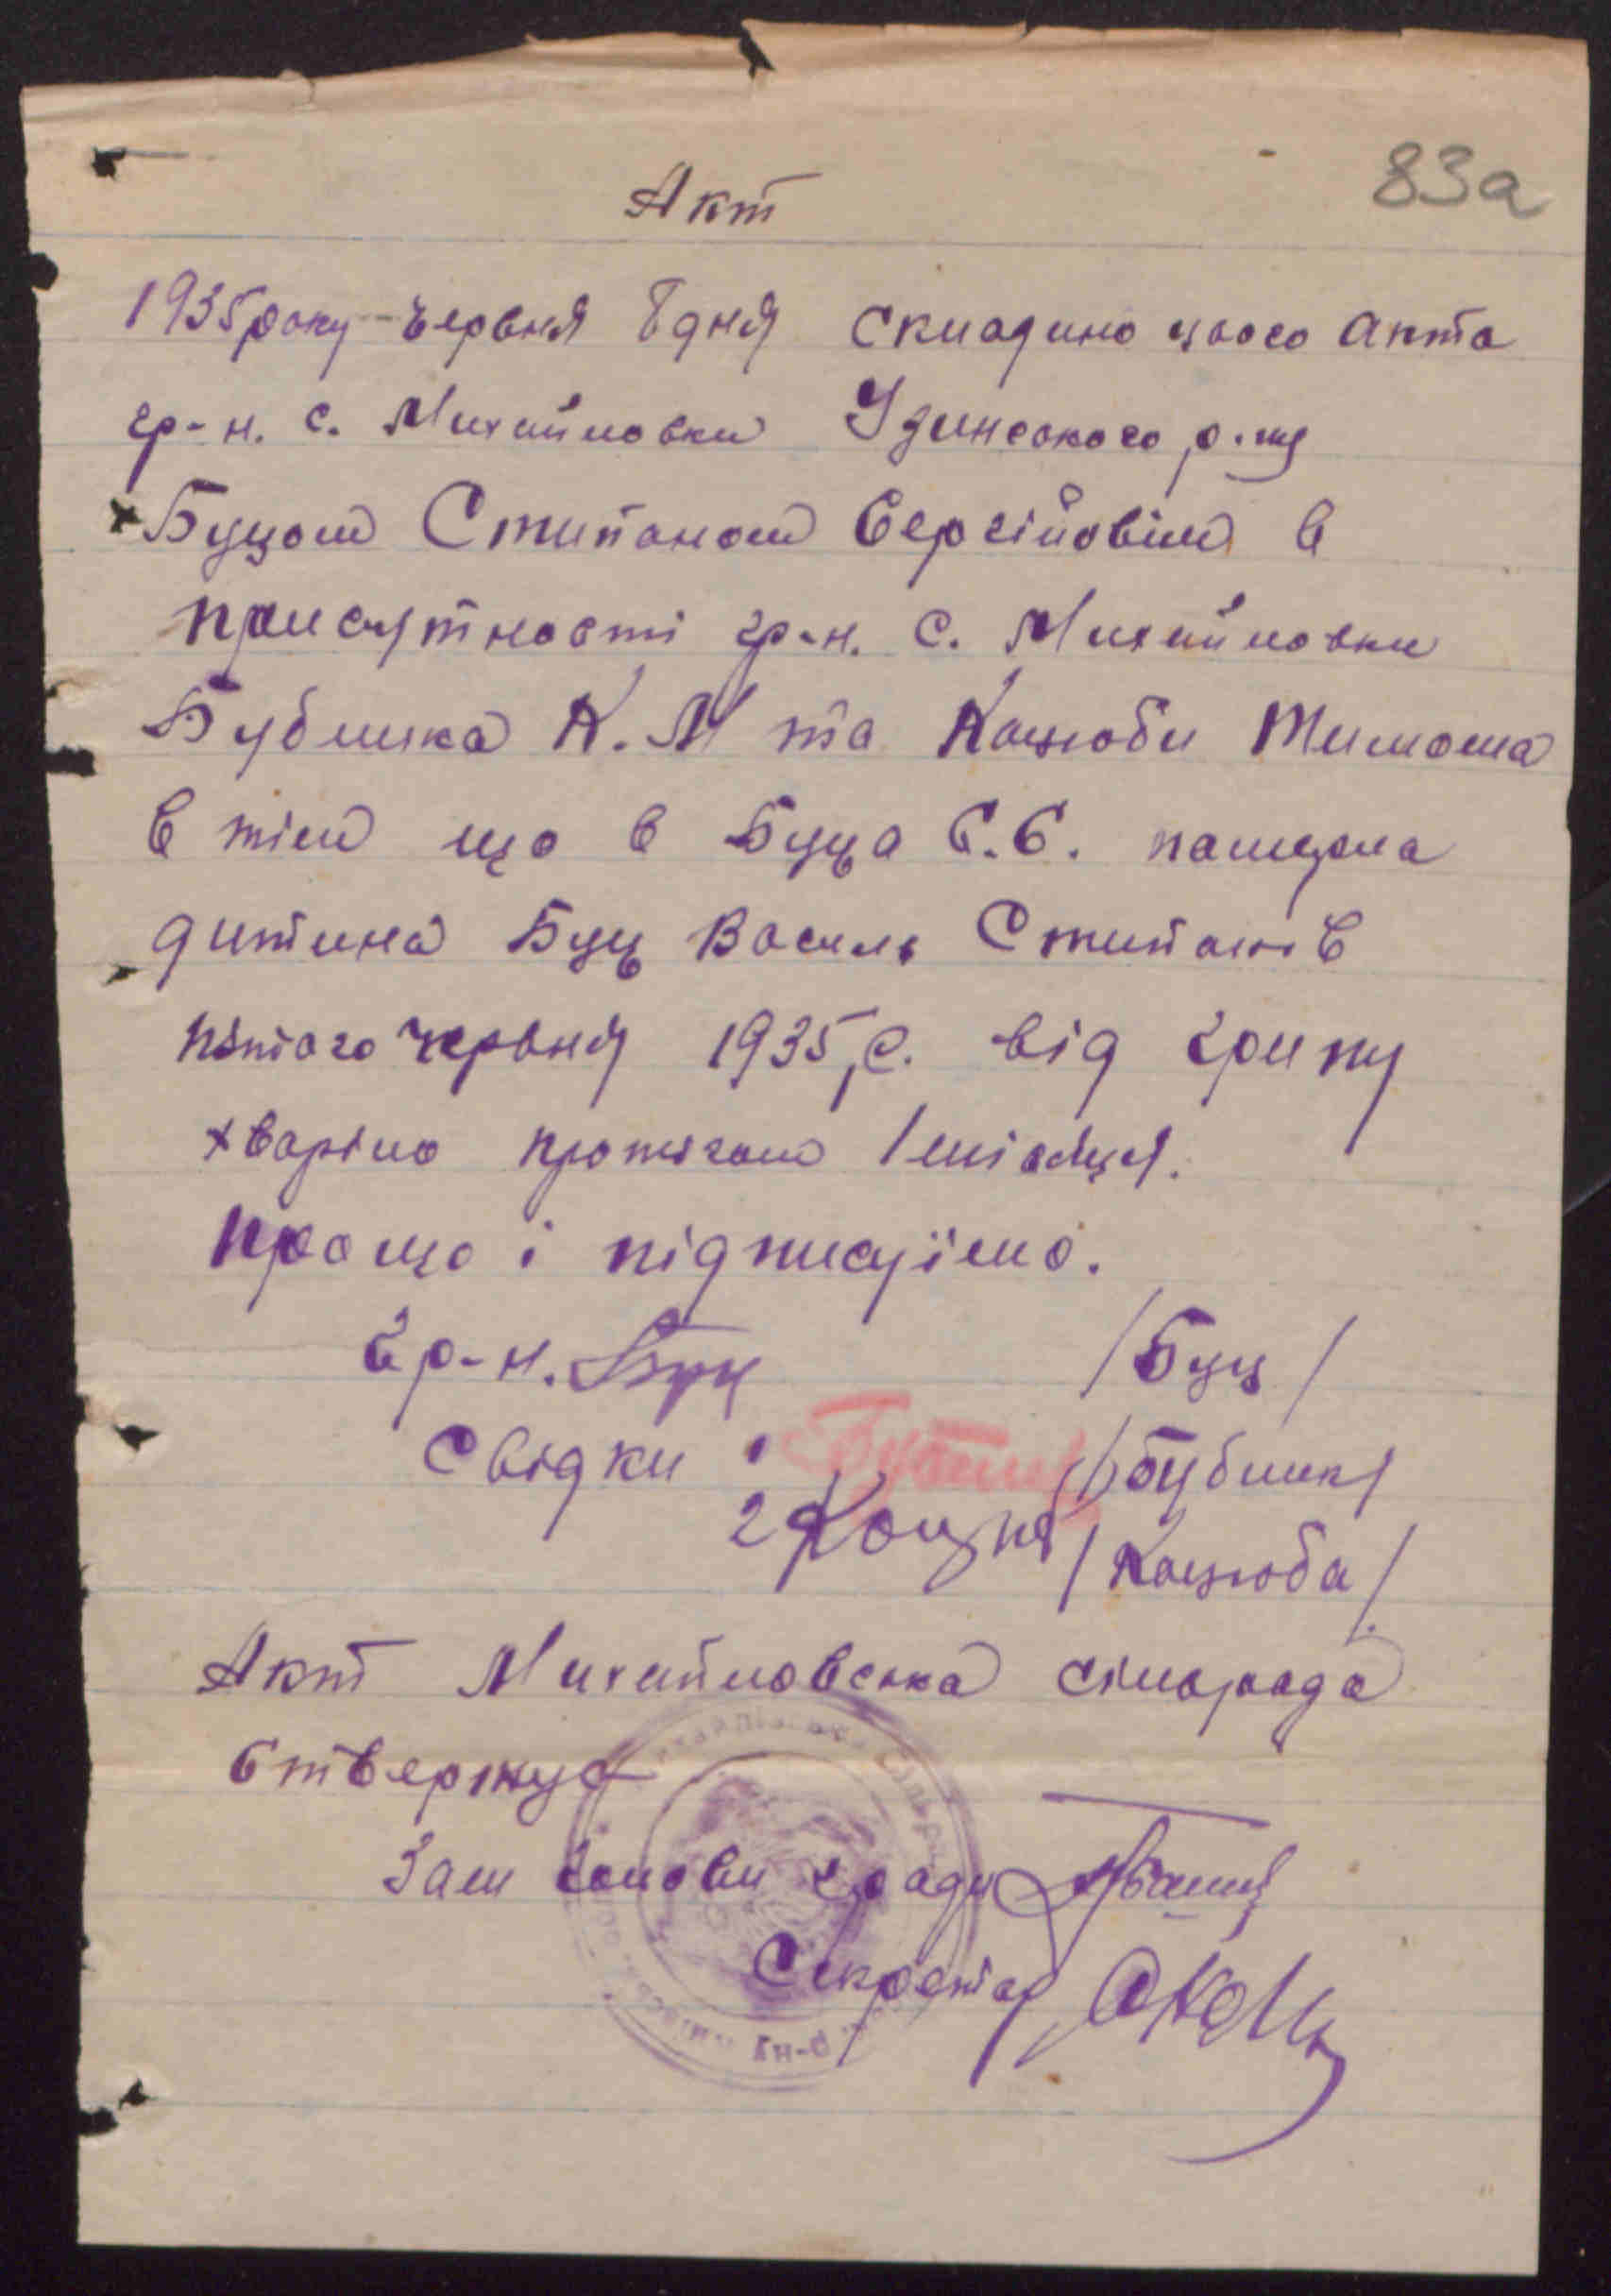 83а
Акт
1935 року червня 8 дня складино цього акта
гр-н. с. Михайловки Удинського р-ну
Буцом Стипаном Сергійовім в
присутності гр-н. с. Михайловки
Бублика К. М та Коцюби Тимоша
в тім що в Буца С. С. памерла
дитина Буц Василь Стипанів
пятого червня 1935 р. від грипу
хваріло протягом 1 місяця.
Про що і підписуїмо.
Гр-н. Буц /Буц/
Свідки: Бублик /Бублик/
2 Коцюба /Коцюба/
Акт Михайловська сілорада
ствержує
Зам Голови с/ради
Секретар